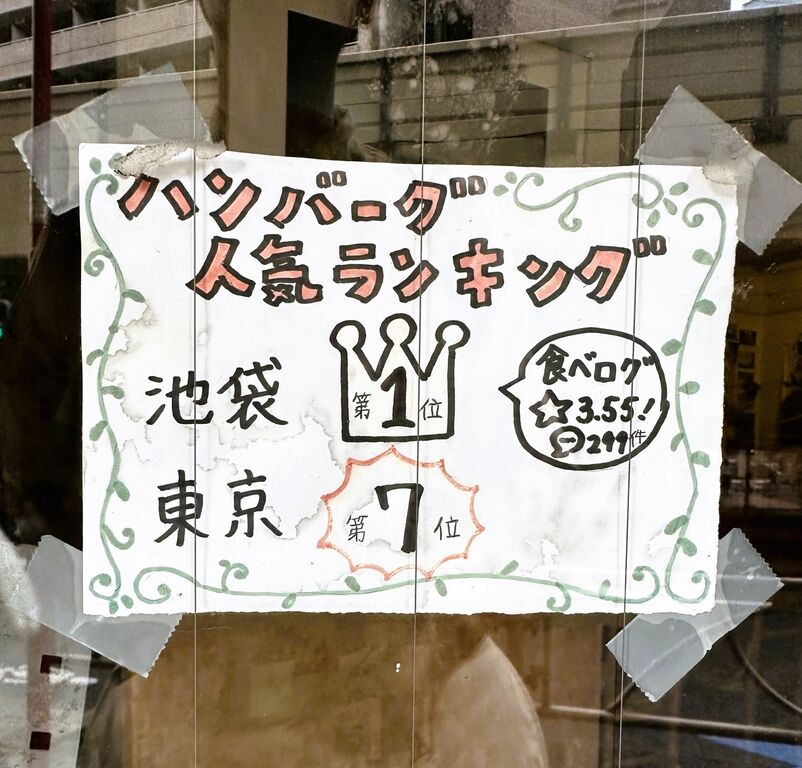 ハンバーグ
人気ランキング
池袋 第1位
食べログ
☆3.55!
299件
東京 第7位